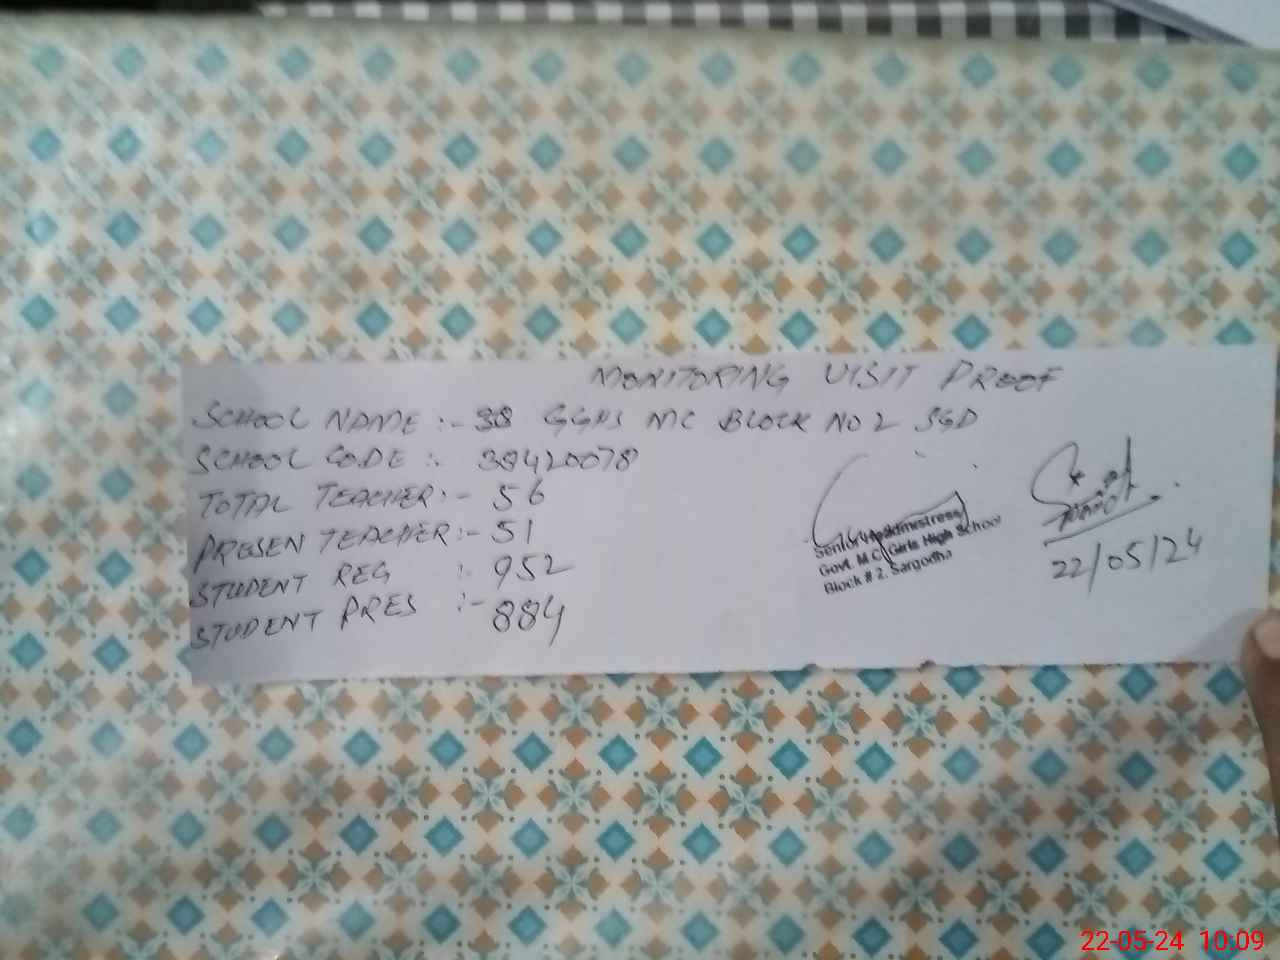 MONITORING VISIT PROOF
SCHOOL NAME :- 38 GGHS MC BLOCK NO 2 SGD
SCHOOL CODE :- 38420078
TOTAL TEACHER:- 56
PRESEN TEACHER:- 51
STUDENT REG :- 952
STUDENT PRES :- 884
Senior Headmistress
Govt. M.C. Girls High School
Block # 2. Sargodha
22/05/24
22-05-24 10:09